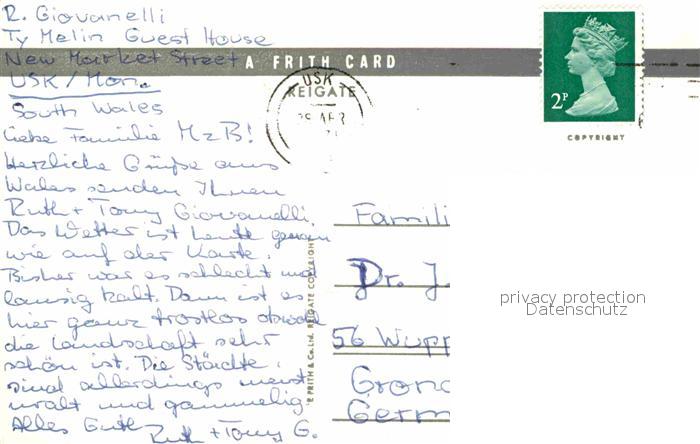 R. Giovanelli
Ty Melin Guest House
New Market Street
USK / Mon.
South Wales
A FRITH CARD
USK
REIGATE
2P
COPYRIGHT
Liebe Familie M z B!
Herzliche Grüße aus
Wales senden Ihnen
Ruth + Tony Giovanelli.
Das Wetter ist heute genau
wie auf der Karte.
Bisher war es schlecht und
lausig kalt. Dann ist es
hier ganz trostlos obwohl
die Landschaft sehr
schön ist. Die Städte
sind allerdings meist
uralt und gammelig.
Alles Gute
Ruth + Tony G.
F. FRITH & Co. Ltd. REIGATE COPYRIGHT
Famili
Dr. J.
56 Wupp
Germ
privacy protection
Datenschutz